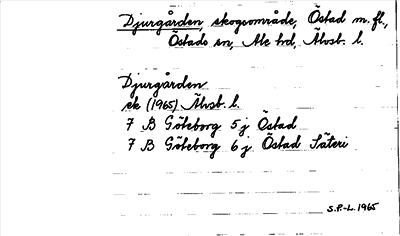 Djurgården skogsområde, Östad m. fl.,
Östads sn, Ale hd, Älvsb. l.
Djurgården
ek (1965) Älvsb. l.
7 B Göteborg 5 j Östad
7 B Göteborg 6 j Östad Säteri
S.P-L. 1965